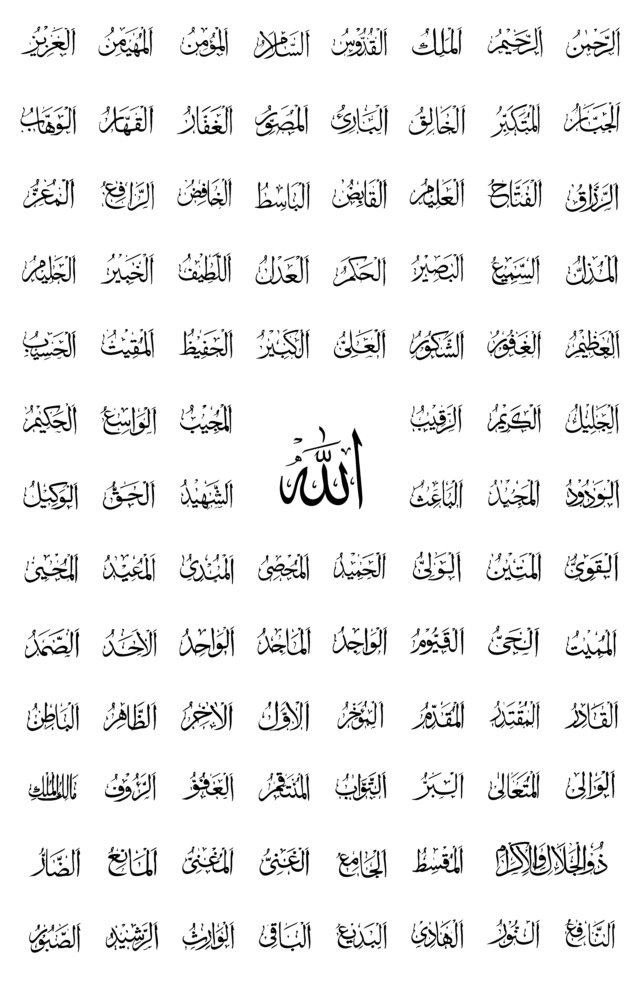 الرَّحْمٰنُ الرَّحِيْمُ الْمَلِكُ الْقُدُّوْسُ السَّلَامُ الْمُؤْمِنُ الْمُهَيْمِنُ الْعَزِيْزُ
الْجَبَّارُ الْمُتَكَبِّرُ الْخَالِقُ الْبَارِئُ الْمُصَوِّرُ الْغَفَّارُ الْقَهَّارُ الْوَهَّابُ
الرَّزَّاقُ الْفَتَّاحُ الْعَلِيْمُ الْقَابِضُ الْبَاسِطُ الْخَافِضُ الرَّافِعُ الْمُعِزُّ
الْمُذِلُّ السَّمِيْعُ الْبَصِيْرُ الْحَكَمُ الْعَدْلُ اللَّطِيْفُ الْخَبِيْرُ الْحَلِيْمُ
الْعَظِيْمُ الْغَفُوْرُ الشَّكُوْرُ الْعَلِىُّ الْكَبِيْرُ الْحَفِيْظُ الْمُقِيْتُ الْحَسِيْبُ
الْجَلِيْلُ الْكَرِيْمُ الرَّقِيْبُ الْمُجِيْبُ الْوَاسِعُ الْحَكِيْمُ
اللّٰهُ
الْوَدُوْدُ الْمَجِيْدُ الْبَاعِثُ الشَّهِيْدُ الْحَقُّ الْوَكِيْلُ
الْقَوِىُّ الْمَتِيْنُ الْوَلِىُّ الْحَمِيْدُ الْمُحْصِىْ الْمُبْدِئُ الْمُعِيْدُ الْمُحْيِىْ
الْمُمِيْتُ الْحَىُّ الْقَيُّوْمُ الْوَاجِدُ الْمَاجِدُ الْوَاحِدُ الْاَحَدُ الصَّمَدُ
الْقَادِرُ الْمُقْتَدِرُ الْمُقَدِّمُ الْمُؤَخِّرُ الْاَوَّلُ الْاٰخِرُ الظَّاهِرُ الْبَاطِنُ
الْوَالِىْ الْمُتَعَالِىْ الْبَرُّ التَّوَّابُ الْمُنْتَقِمُ الْعَفُوُّ الرَّؤُوْفُ مَالِكُ الْمُلْكِ
ذُوالْجَلَالِ وَالْاِكْرَامِ الْمُقْسِطُ الْجَامِعُ الْغَنِىُّ الْمُغْنِىْ الْمَانِعُ الضَّارُّ
النَّافِعُ النُّوْرُ الْهَادِىْ الْبَدِيْعُ الْبَاقِىْ الْوَارِثُ الرَّشِيْدُ الصَّبُوْرُ